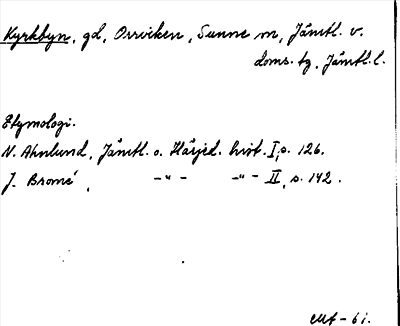 Kyrkbyn, gd, Orrviken, Sunne sn, Jämtl. v.
doms. tg, Jämtl. l.
Etymologi.
N. Ahnlund, Jämtl. o. Härjed. hist. I, s. 126.
J. Bromé, –"– –"– II, s. 142.